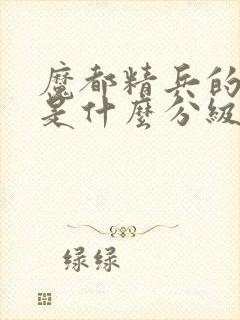 魔都精兵的
是什麼分級
绿绿